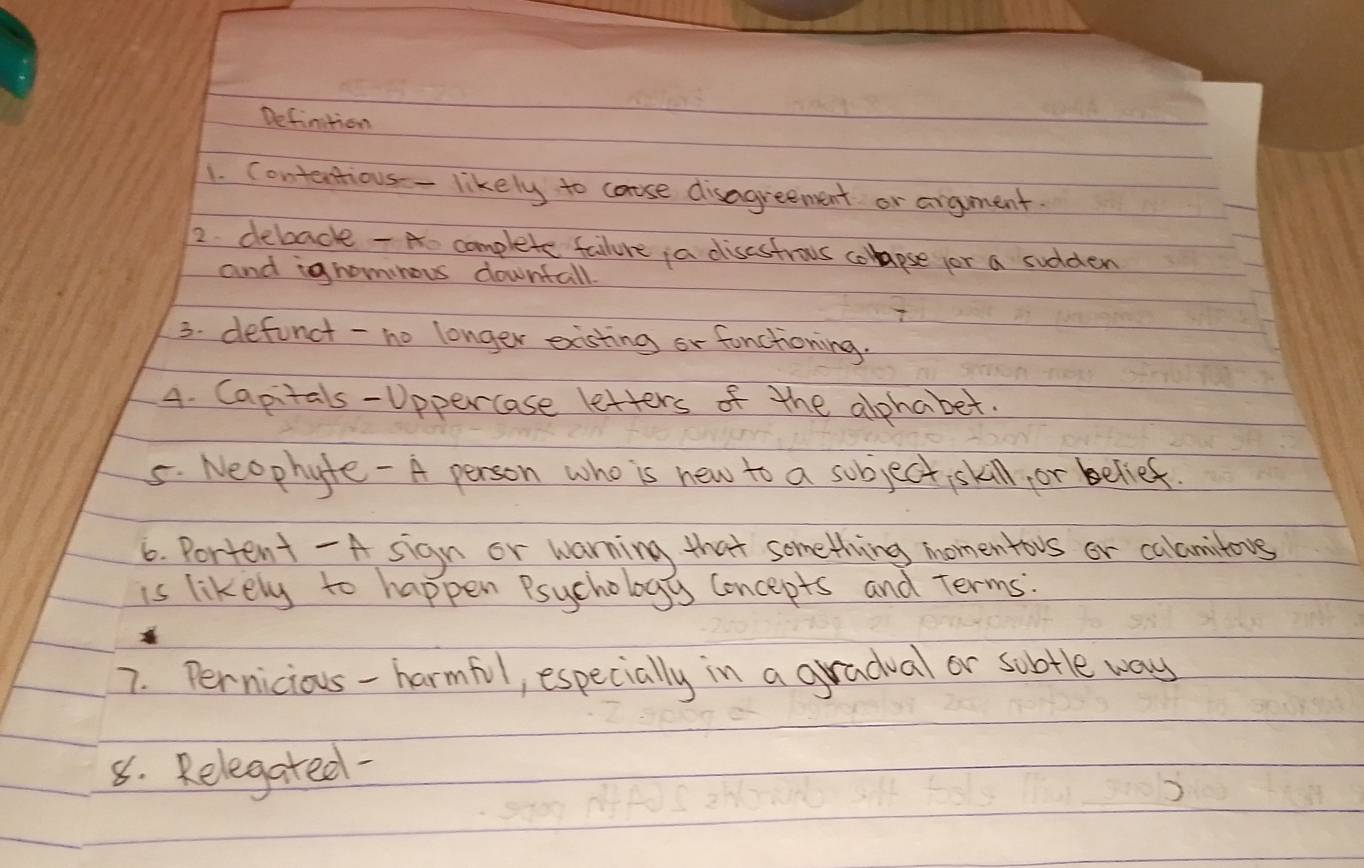 Definition
1. Contentious - likely to cause disagreement or argument.
2. debacle - A complete failure, a disastrous collapse, or a sudden
and ignominous downfall.
3. defunct - no longer existing or functioning.
4. Capitals - Uppercase letters of the alphabet.
5. Neophyte - A person who is new to a subject, skill, or belief.
6. Portent - A sign or warning that something momentous or calamitous
is likely to happen Psychology Concepts and Terms.
7. Pernicious - harmful, especially in a gradual or subtle way
8. Relegated -